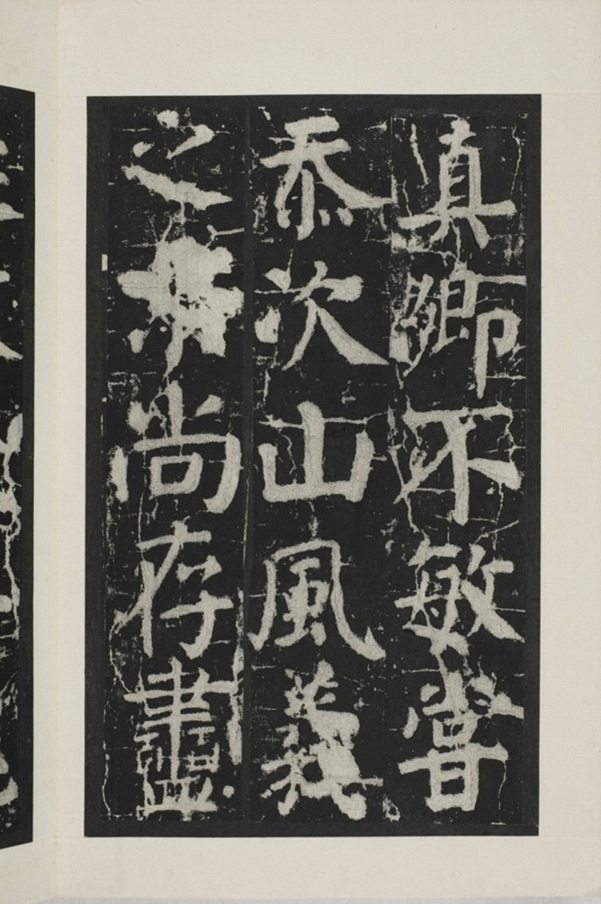 真卿不敏嘗
忝次山風義
之尚存盡